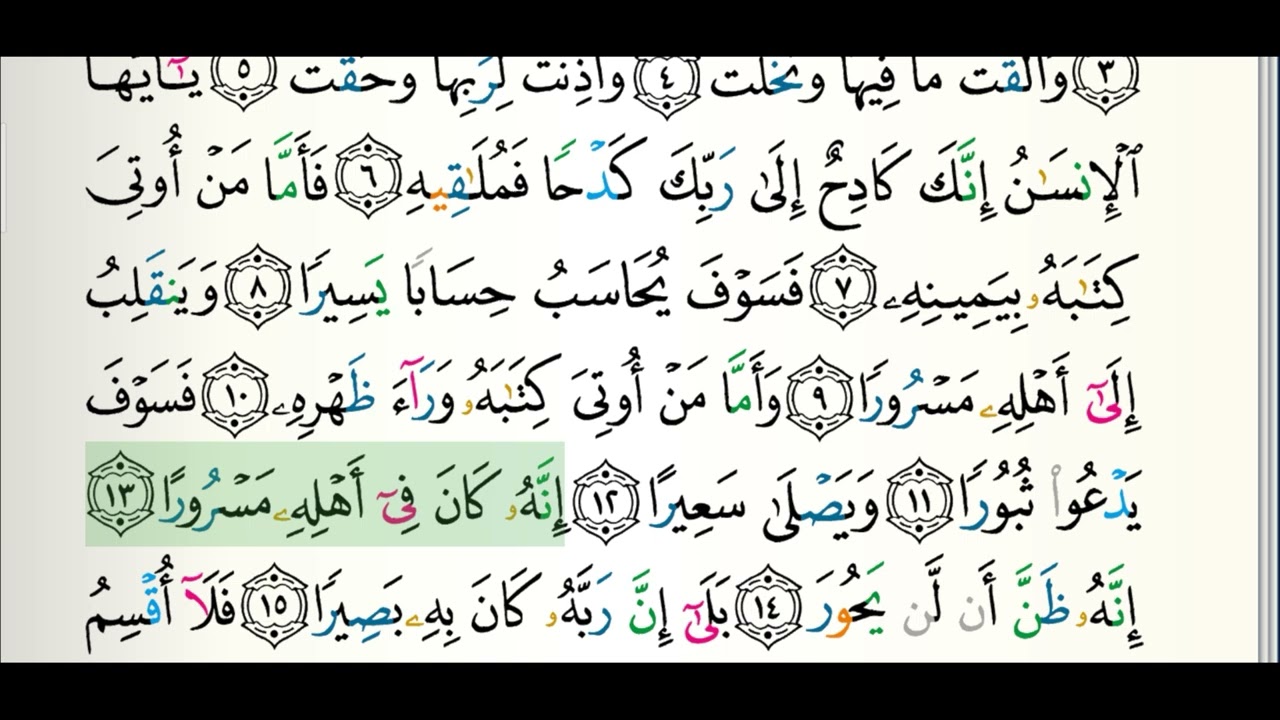 ٣ وَأَلْقَتْ مَا فِيهَا وَتَخَلَّتْ ٤ وَأَذِنَتْ لِرَبِّهَا وَحُقَّتْ ٥ يَـٰٓأَيُّهَا
ٱلْإِنسَـٰنُ إِنَّكَ كَادِحٌ إِلَىٰ رَبِّكَ كَدْحًا فَمُلَـٰقِيهِ ٦ فَأَمَّا مَنْ أُوتِىَ
كِتَـٰبَهُۥ بِيَمِينِهِۦ ٧ فَسَوْفَ يُحَاسَبُ حِسَابًا يَسِيرًا ٨ وَيَنقَلِبُ
إِلَىٰٓ أَهْلِهِۦ مَسْرُورًا ٩ وَأَمَّا مَنْ أُوتِىَ كِتَـٰبَهُۥ وَرَآءَ ظَهْرِهِۦ ١٠ فَسَوْفَ
يَدْعُوا۟ ثُبُورًا ١١ وَيَصْلَىٰ سَعِيرًا ١٢ إِنَّهُۥ كَانَ فِىٓ أَهْلِهِۦ مَسْرُورًا ١٣
إِنَّهُۥ ظَنَّ أَن لَّن يَحُورَ ١٤ بَلَىٰٓ إِنَّ رَبَّهُۥ كَانَ بِهِۦ بَصِيرًا ١٥ فَلَآ أُقْسِمُ